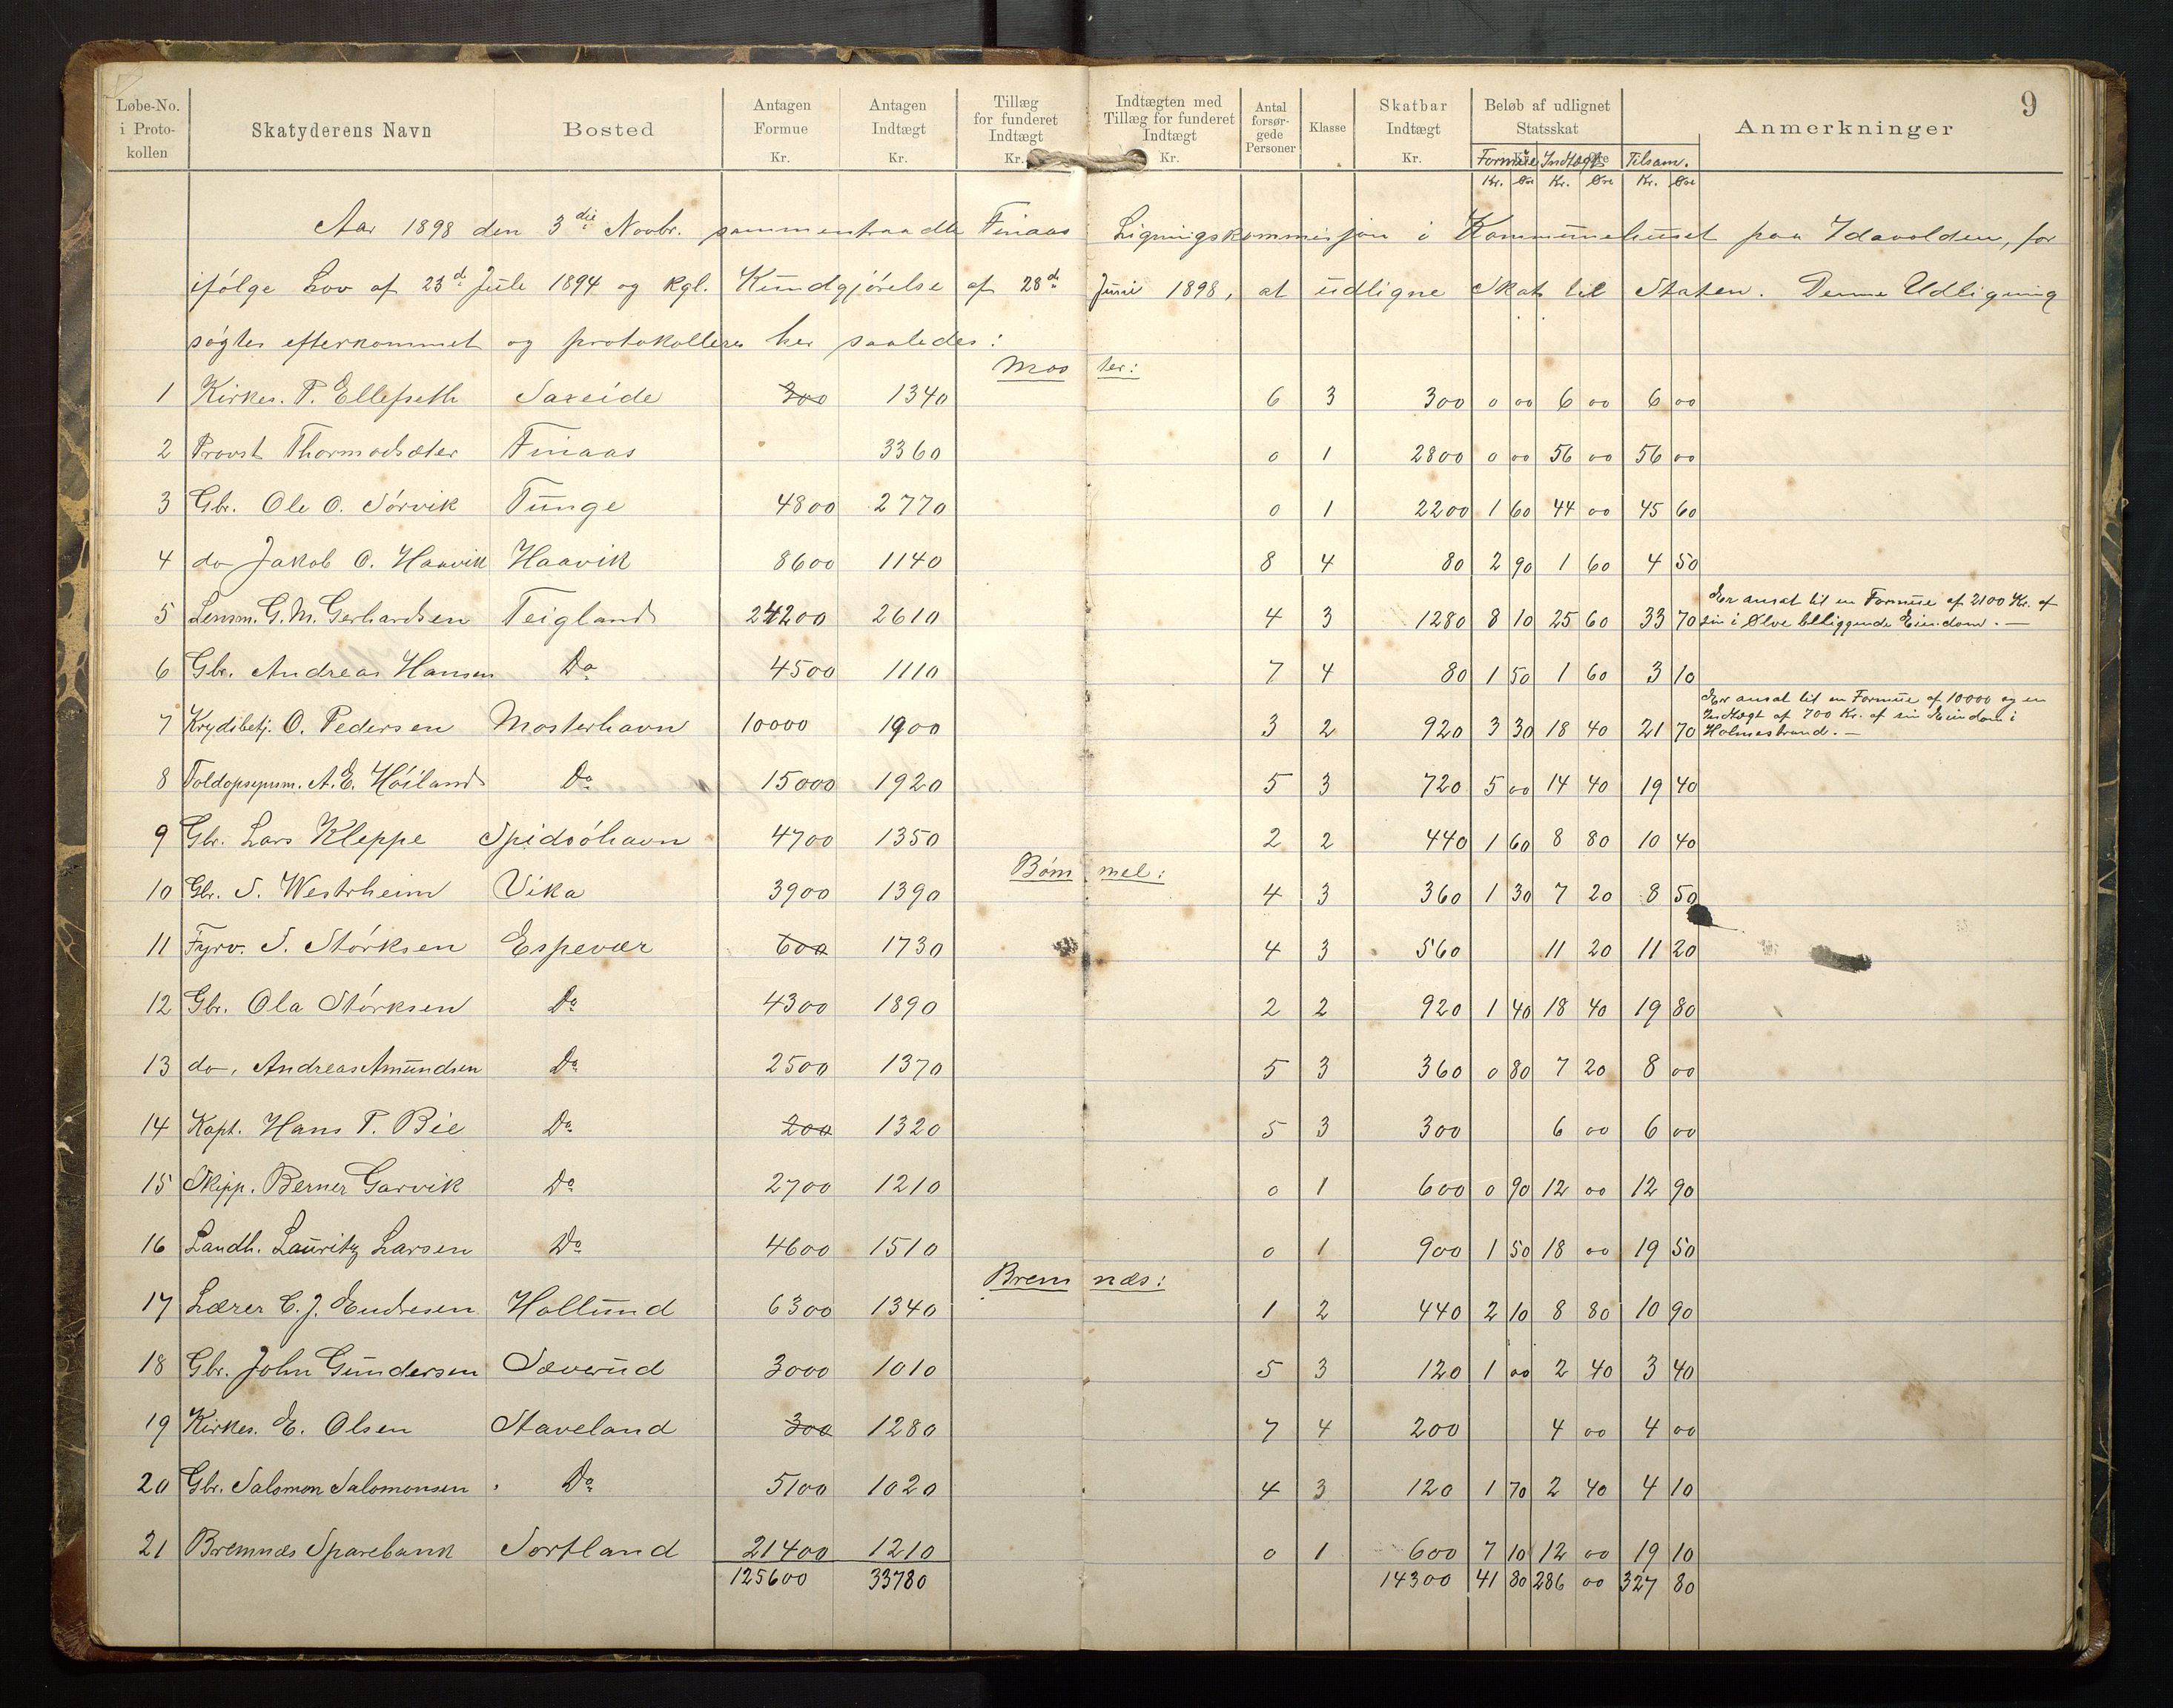 9
Løbe-No. i Proto-kollen | Skatyderens Navn | Bosted | Antagen Formue Kr. | Antagen Indtægt Kr. | Tillæg for funderet Indtægt Kr. | Indtægten med Tillæg for funderet Indtægt Kr. | Antal forsør-gede Personer | Klasse | Skatbar Indtægt Kr. | Beløb af udlignet Statsskat | Anmerkninger
Formue Kr. Øre | Indtægt Kr. Øre | Tilsam. Kr. Øre
Aar 1898 den 3die Novbr. sammentraadte Finaas Ligningskommisjon i Kommunehuset paa Idavolden, for
ifølge Lov af 23d Juli 1894 og Kgl. Kundgjørelse af 28d Juni 1898, at udligne Skat til Staten. Denne Udligning
søgtes efterkommet og protokolleres her saaledes:
Moster:
1 Kirkes. P. Ellefseth Saxeide 300 1340 6 3 300 0 00 6 00 6 00
2 Provst Thormodsæter Finaas 3360 0 1 2800 0 00 56 00 56 00
3 Gbr. Ole O. Sørvik Tunge 4800 2770 0 1 2200 1 60 44 00 45 60
4 do Jakob O. Haavik Haavik 8600 1140 8 4 80 2 90 1 60 4 50
5 Lensm. G. M. Gerhardsen Teigland 24200 2610 4 3 1280 8 10 25 60 33 70 Er ansat til en Formue af 2100 Kr. af
sin i Ølve beliggende Eiendom. —
6 Gbr. Andreas Hansen Do 4500 1110 7 4 80 1 50 1 60 3 10
7 Krydsbetj. O. Pedersen Mosterhavn 10000 1900 3 2 920 3 30 18 40 21 70 Er ansat til en Formue af 10000 og en
Indtægt af 700 Kr. af sin Eiendom i
Holmestrand. —
8 Toldopsynsm. A. E. Høiland Do 15000 1920 5 3 720 5 00 14 40 19 40
9 Gbr. Lars Kleppe Spidsøhavn 4700 1350 2 2 440 1 60 8 80 10 40
Bømmel:
10 Gbr. S. Westrheim Vika 3900 1390 4 3 360 1 30 7 20 8 50
11 Fyrv. S. Størksen Espevær 600 1730 4 3 560 11 20 11 20
12 Gbr. Ola Størksen Do 4300 1890 2 2 920 1 40 18 40 19 80
13 do, Andreas Amundsen Do 2500 1370 5 3 360 0 80 7 20 8 00
14 Kapt. Hans P. Bie Do 200 1320 5 3 300 6 00 6 00
15 Skipp. Berner Garvik Do 2700 1210 0 1 600 0 90 12 00 12 90
16 Landh. Lauritz Larsen Do 4600 1510 0 1 900 1 50 18 00 19 50
Bremnæs:
17 Lærer C. J. Endresen Hollund 6300 1340 1 2 440 2 10 8 80 10 90
18 Gbr. John Gundersen Sæverud 3000 1010 5 3 120 1 00 2 40 3 40
19 Kirkes. E. Olsen Staveland 300 1280 7 4 200 4 00 4 00
20 Gbr. Salomon Salomonsen Do 5100 1020 4 3 120 1 70 2 40 4 10
21 Bremnæs Sparebank Sortland 21400 1210 0 1 600 7 10 12 00 19 10
125600 33780 14300 41 80 286 00 327 80